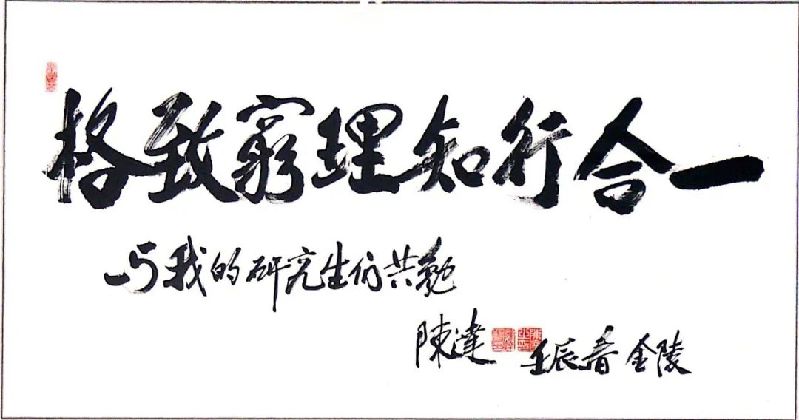 格致窮理知行合一
与我的研究生们共勉
陳達 壬辰春 金陵